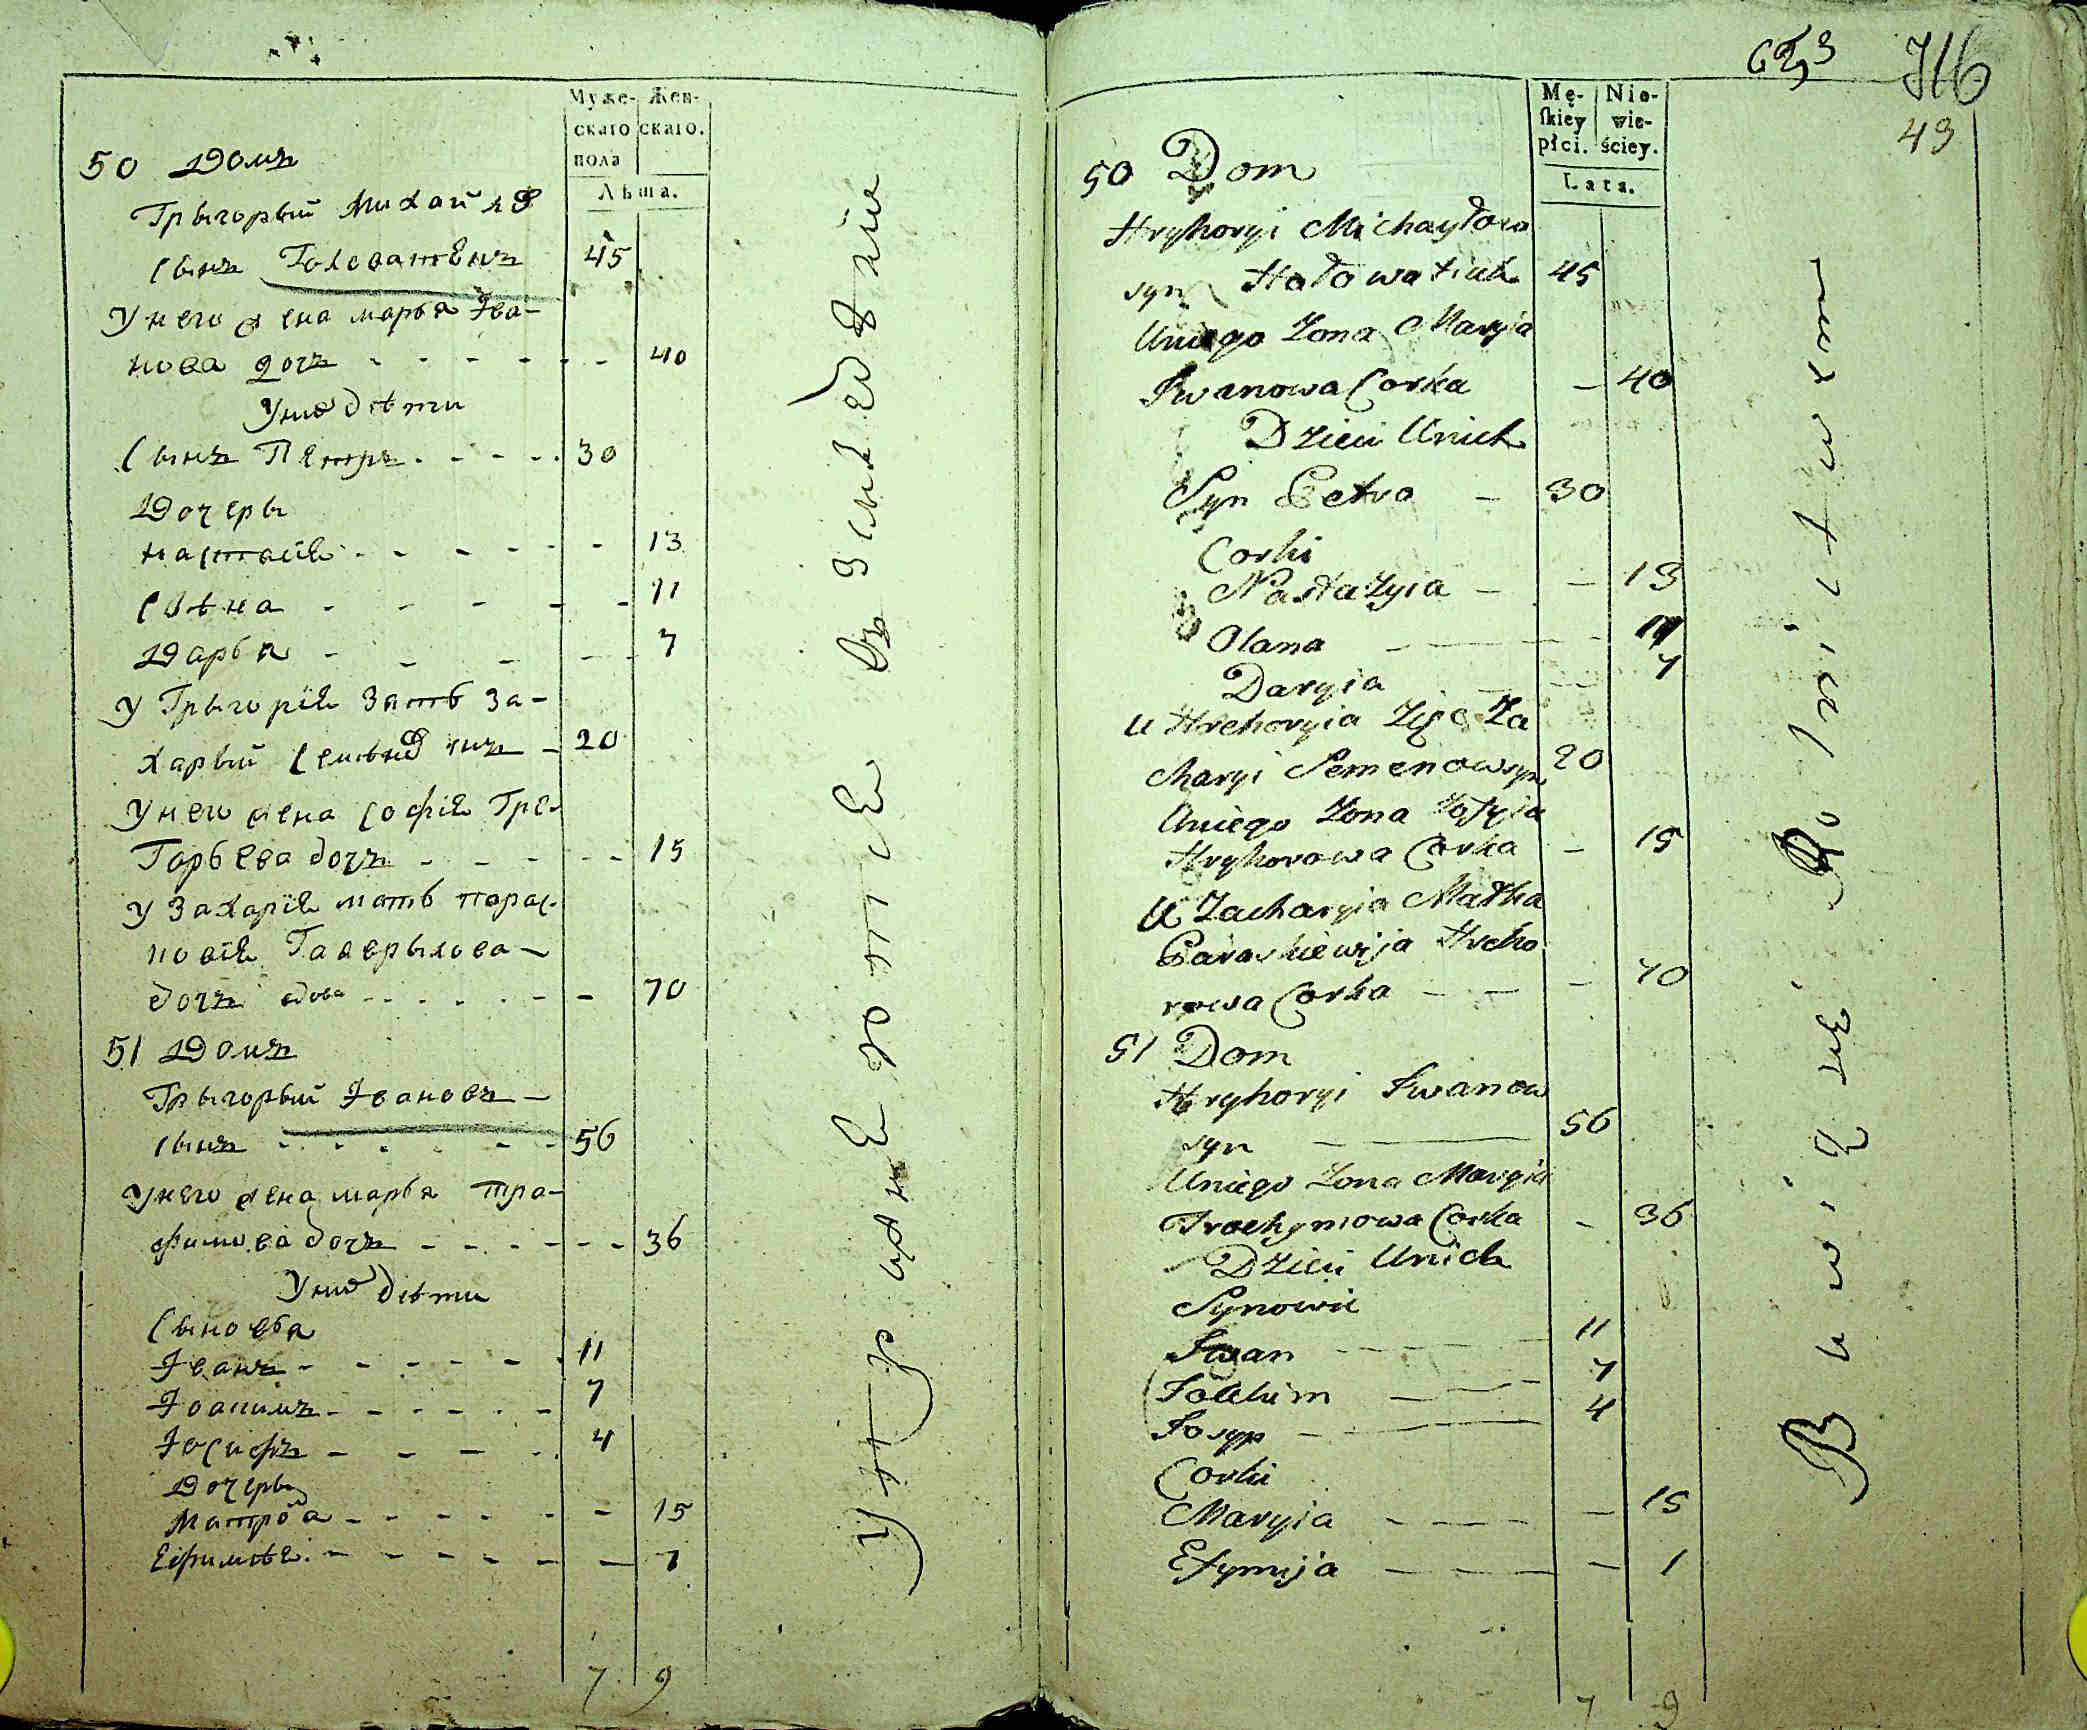 Муже-
скаго
пола
Жен-
скаго.
Лѣта.
50 Домъ
Грыгорый Михайлов
сынъ Головатюкъ 45
У него жена марья Іва-
нова дочъ - - - - - - 40
У них дѣти
Сынъ Петръ - - - - 30
Дочеры
настасія - - - - - - 13
Олѣна - - - - - 11
Дарья - - - - - 7
У Грыгорія зять За-
харый Семенов сынъ - 20
У него жена софія Гре-
горьева дочъ - - - - - 15
У Захарія мать парас-
ковія Гаврылова -
дочъ вдова - - - - - - 70
51 Домъ
Грыгорый Івановъ -
сынъ - - - - - - 56
У него жена марья тро-
фимова дочъ - - - - - - 36
У них дѣти
Сыновья
Іванъ - - - - - - 11
Іоакимъ - - - - - - 7
Іосифъ - - - - - 4
Дочеры
Матрона - - - - - - 15
Ефимѣя - - - - - - 1
7 9
716
49
Mę-
ſkiey
płci.
Nie-
wie-
ściey.
Lata.
50 Dom
Hryhoryi Michayłow
syn Hołowatiuk 45
U niego Zona Maryia
Iwanowa Corka - 40
Dzieci U nich
Syn Petro - 30
Corki
Nastazyia - - 13
Olana - - - 11
Daryia - - 7
U Hrehoryia Zięc Za
charyi Semenow syn 20
U niego Zona Zofyia
Hryhorowa Corka - 15
U Zacharyia Matka
Paraskiewija Hreho
rowa Corka - - - 70
51 Dom
Hryhoryi Iwanow
syn - 56
U niego Zona Maryia
Trochymowa Corka - 36
Dzieci U nich
Synowie
Iwan - - - - 11
Joachim - - - 7
Iosyp - - - 4
Corki
Maryia - - - - - 15
Efymija - - - - - 1
7 9